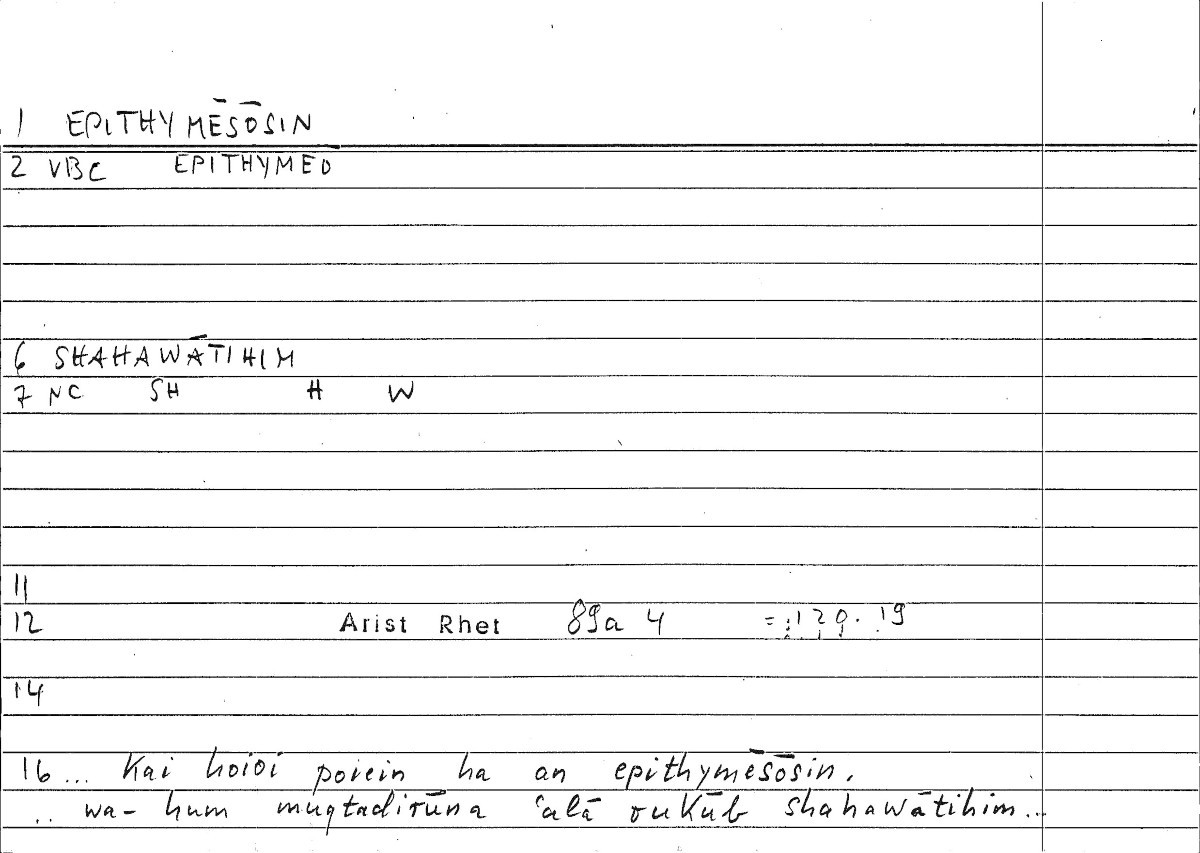 1 EPITHYMĒSŌSIN
2 VBC EPITHYMEŌ
6 SHAHAWĀTIHIM
7 NC SH H W
11
12 Arist Rhet 89a 4 = 120.19
14
16 ... Kai hoioi poiein ha an epithymēsōsin.
.. wa-hum muqtadirūna ʿalā rukūb shahawātihim...